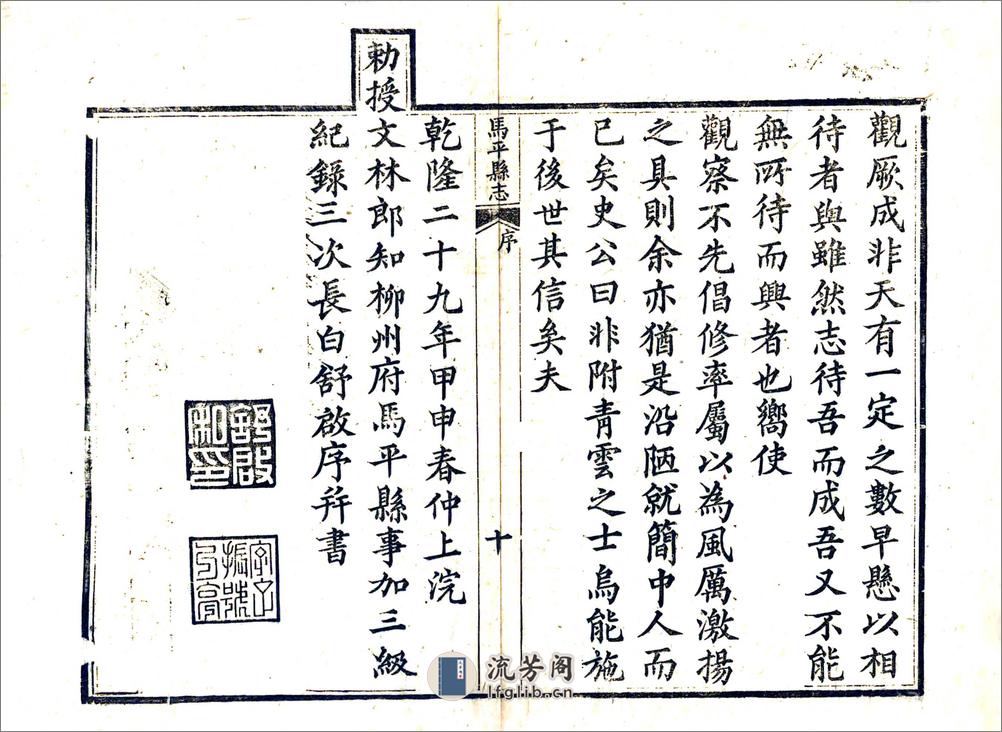 觀厥成非天有一定之數早懸以相
待者與雖然志待吾而成吾又不能
無所待而興者也嚮使
觀察不先倡修率屬以為風厲激揚
之具則余亦猶是沿陋就簡中人而
已矣史公曰非附青雲之士烏能施
于後世其信矣夫
馬平縣志
序
十
乾隆二十九年甲申春仲上浣
勅授文林郎知柳州府馬平縣事加三級
紀錄三次長白舒啟序并書
舒啟
私印
流芳阁
lfglib.cn